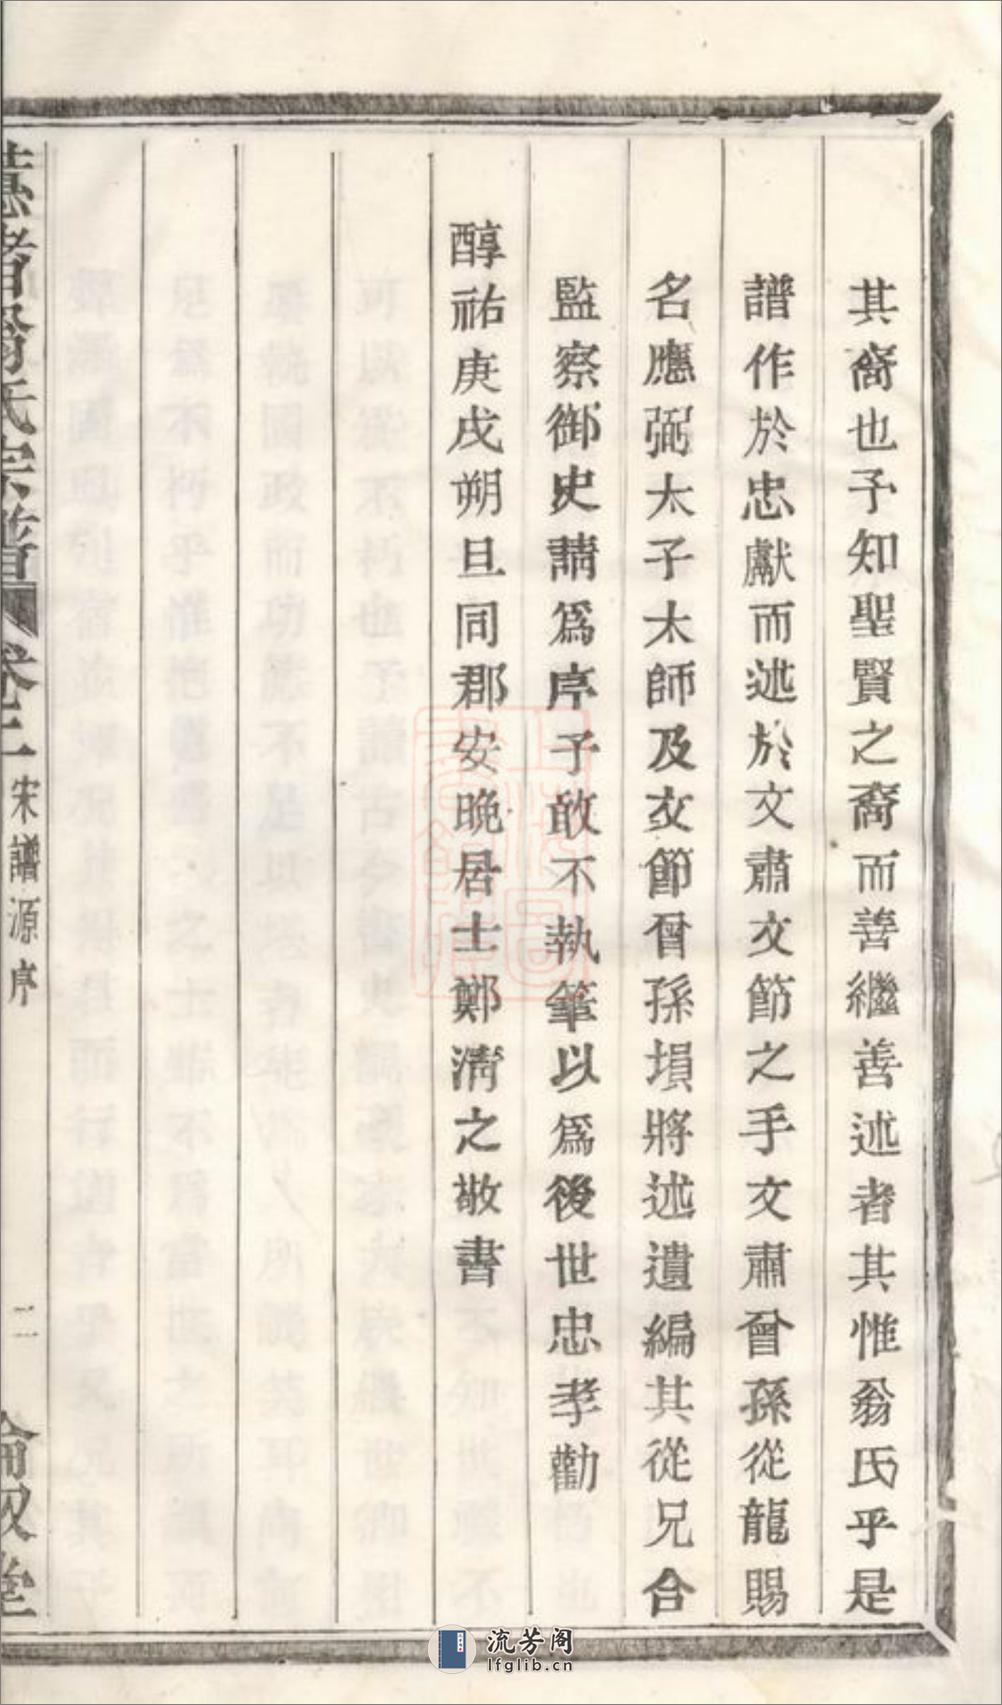 其裔也予知聖賢之裔而善繼善述者其惟翁氏乎是
譜作於忠獻而述於文肅文節之手文肅曾孫從龍賜
名應弼太子太師及文節曾孫塤將述遺編其從兄合
監察御史請爲序予敢不執筆以爲後世忠孝勸
醇祐庚戌朔旦同郡安晚居士鄭清之敬書
翁氏宗譜 卷二 宋譜源序 二 倫叙堂
流芳阁
lfglib.cn